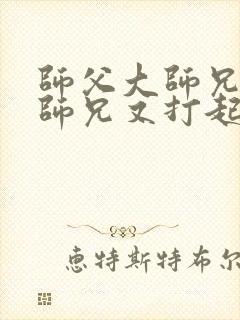 師父大師兄
師兄又打起
惠特斯特布尔